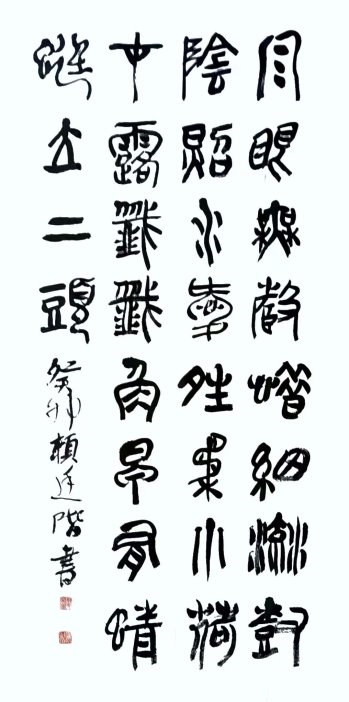 泉眼無聲惜細流樹
陰照水愛晴柔小荷
才露尖尖角早有蜻
蜓立上頭
癸卯賴廷階書